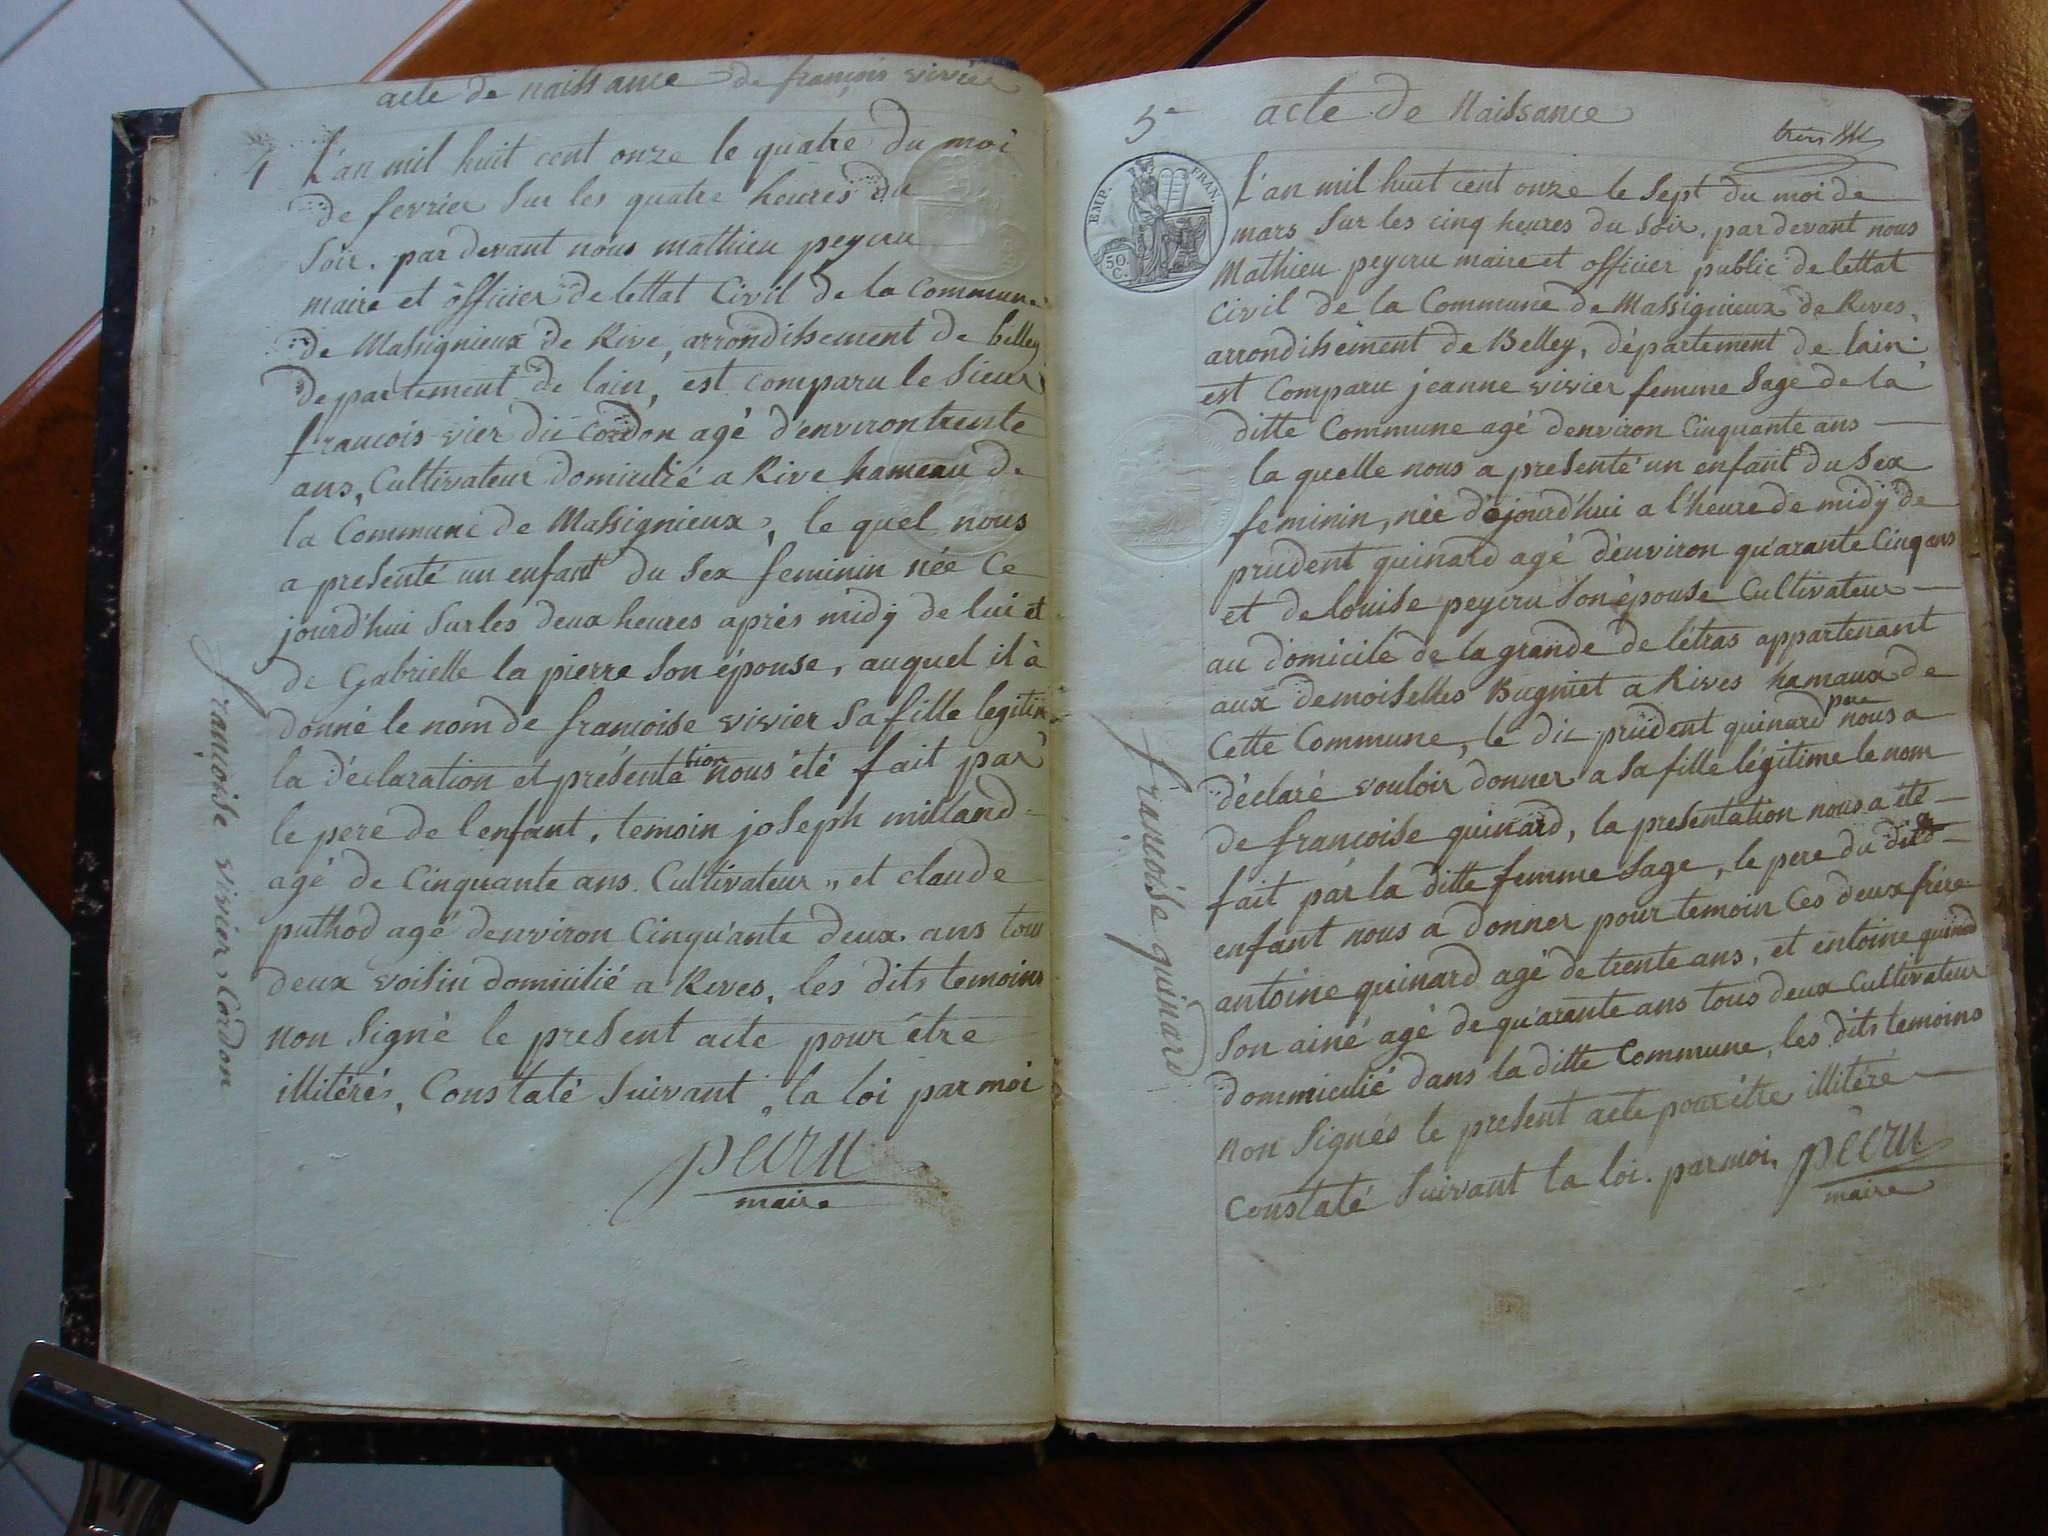 acte de naissance de françois vivier
4 L'an mil huit cent onze le quatre du moi
de fevrier sur les quatre heures du
soir. par devant nous mathieu peycru
maire et officier de lettat Civil de la Commune
de Massignieux de Rive, arrondissement de belley
departement de lain, est comparu le sieur
francois vier dit Cordon agé d'environ trente
ans, Cultivateur domicilié a Rive hameau de
la Commune de Massignieux, le quel nous
a presenté un enfant du sex feminin née Ce
jourd'hui sur les deux heures aprés midy de lui et
de Gabrielle la pierre son épouse, auquel il à
donné le nom de francoise vivier sa fille legitim
la déclaration et présentation nous été fait par
le pere de lenfant, temoin joseph milland
agé de Cinquante ans Cultivateur, et claude
puthod agé denviron Cinqu'ante deux ans tous
deux voisin domicilié a Rives, les dits temoins
non signé le present acte pour être
illitérés, Constaté suivant la loi par moi
pecru
maire
françoise vivier Cordon
5 acte de Naissance
trois
EMP. FRAN.
50 C.
L'an mil huit cent onze le sept du moi de
mars sur les cinq heures du soir, par devant nous
Mathieu peycru maire et officier public de lettat
Civil de la Commune de Massignieux de Rives,
arrondisement de Belley, département de lain
est Comparu jeanne vivier femme sage de la
ditte Commune agé denviron Cinquante ans
la quelle nous a presenté un enfant du sex
feminin, née d'ajourd'hui a l'heure de midy de
prudent guinard agé d'environ qu'arante Cinq ans
et de louise peycru son épouse Cultivateur
au domicile de la grande de létras appartenant
aux demoiselles Bugniet a Rives hamaux de
Cette Commune, le dit prudent guinard pere nous a
déclaré vouloir donner a sa fille légitime le nom
de françoise guinard, la presentation nous a été
fait par la ditte femme sage, le pere du dit
enfant nous a donner pour temoin Ces deux frére
antoine guinard agé de trente ans, et entoine guinard
son ainé agé de qu'arante ans tous deux Cultivateur
dommicilié dans la ditte Commune, les dits temoins
non signés le present acte pour être illitéré
Constaté suivant la loi. par moi, pecru
maire
françoise guinard